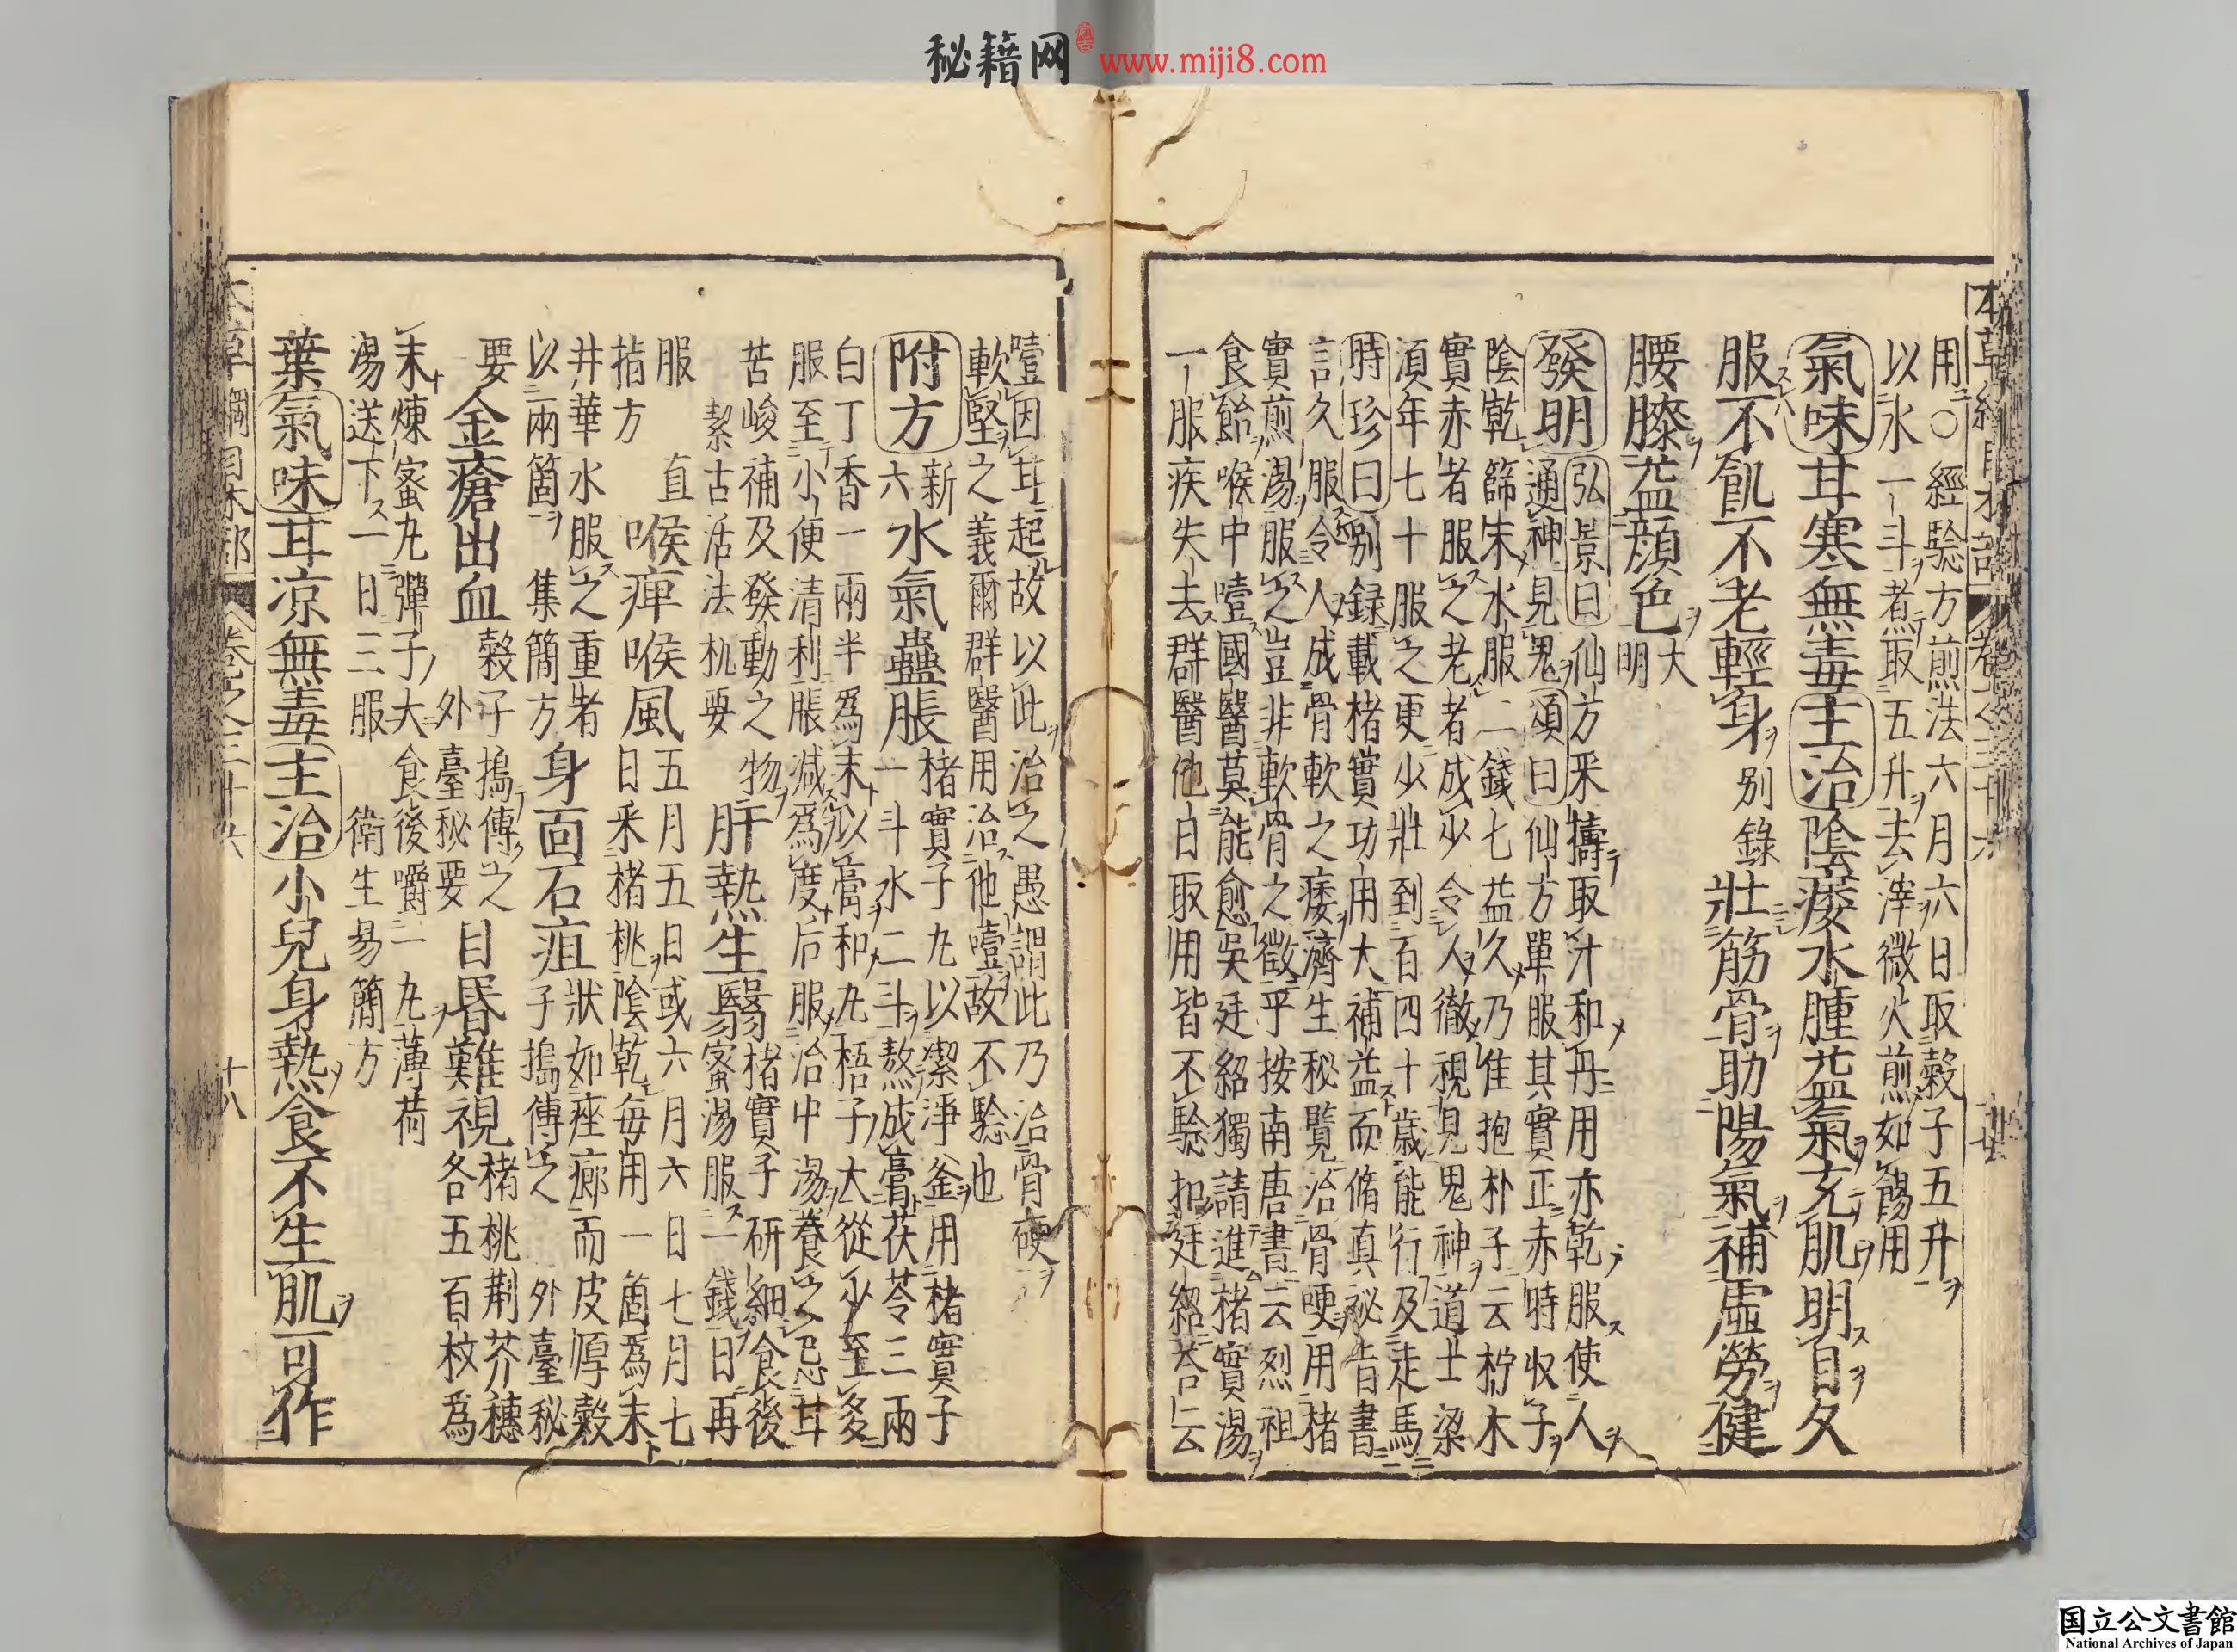 秘籍网 www.miji8.com
用○經驗方煎法六月六日取穀子五升
以水一斗煮取五升去滓微火煎如餳用
氣味甘寒無毒主治陰痿水腫益氣充肌明目久
服不飢不老輕身別錄壯筋骨助陽氣補虛勞健
腰膝益顔色大明
發明弘景曰仙方釆擣取汁和丹用亦乾服使人
通神見鬼頌曰仙方單服其實正赤時収子
陰乾篩末水服二錢七益久乃佳抱朴子云柠木
實赤者服之老者成少令人徹視見鬼神道士梁
湏年七十服之更少壯到百四十歲能行及走馬
時珍曰別録載楮實功用大補益而脩眞祕旨書
言久服令人成骨軟之痿濟生秘覽治骨哽用楮
實煎湯服之豈非軟骨之徵乎按南唐書云烈祖
食飴喉中噎國醫莫能愈吳廷紹獨請進楮實湯
一服疾失去群醫他日取用皆不驗扣廷紹荅云
噎因甘起故以此治之愚謂此乃治骨硬
軟堅之義爾群醫用治他噎故不驗也
附方新六水氣蠱脹楮實子丸以潔淨釜用楮實子
一斗水二斗熬成膏茯苓三兩
白丁香一兩半爲末以膏和丸梧子大從少至多
服至小便清利脹減爲度后服治中湯養之忌甘
苦峻補及發動之物
絜古活法机要
肝熱生翳楮實子研細食後
蜜湯服一錢日再
服
直指方
喉痺喉風五月五日或六月六日七月七
日釆楮桃陰乾每用一箇爲末
井華水服之重者
以兩箇
集簡方
身面石疽狀如痤癤而皮厚穀
子搗傅之外臺秘
要
金瘡出血穀子搗傅之
外臺秘要
目昏難視楮桃荆芥穗
各五百枚爲
末煉蜜丸彈子大食後嚼一丸薄荷
湯送下一日三服
衛生易簡方
葉氣味甘凉無毒主治小兒身熱食不生肌可作
十八
国立公文書館
National Archives of Japan